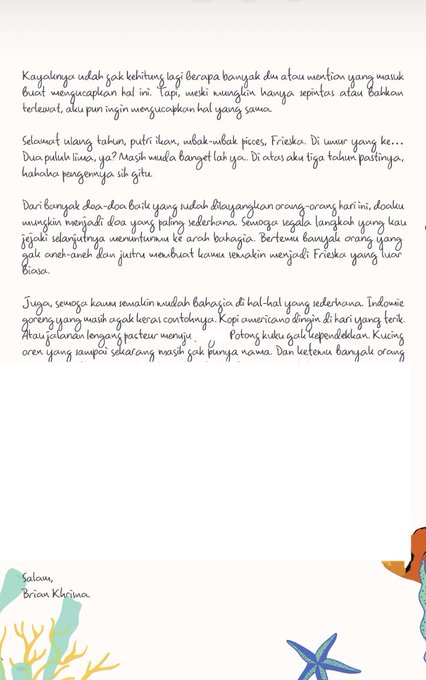 Kayaknya udah gak kehitung lagi berapa banyak dm atau mention yang masuk
buat mengucapkan hal ini. Tapi, meski mungkin hanya sepintas atau bahkan
terlewat, aku pun ingin mengucapkan hal yang sama.
Selamat ulang tahun, putri ikan, mbak-mbak pisces, Frieska. Di umur yang ke...
Dua puluh lima, ya? Masih muda banget lah ya. Di atas aku tiga tahun pastinya,
hahaha pengennya sih gitu.
Dari banyak doa-doa baik yang sudah dilayangkan orang-orang hari ini, doaku
mungkin menjadi doa yang paling sederhana. Semoga segala langkah yang kau
jejaki selanjutnya menuntunmu ke arah bahagia. Bertemu banyak orang yang
gak aneh-aneh dan justru membuat kamu semakin menjadi Frieska yang luar
biasa.
Juga, semoga kamu semakin mudah bahagia di hal-hal yang sederhana. Indomie
goreng yang masih agak keras contohnya. Kopi americano dingin di hari yang terik.
Atau jalanan lengang pasteur menuju Potong kuku gak kependekkan. Kucing
oren yang sampai sekarang masih gak punya nama. Dan ketemu banyak orang
Salam,
Brian Khrisna